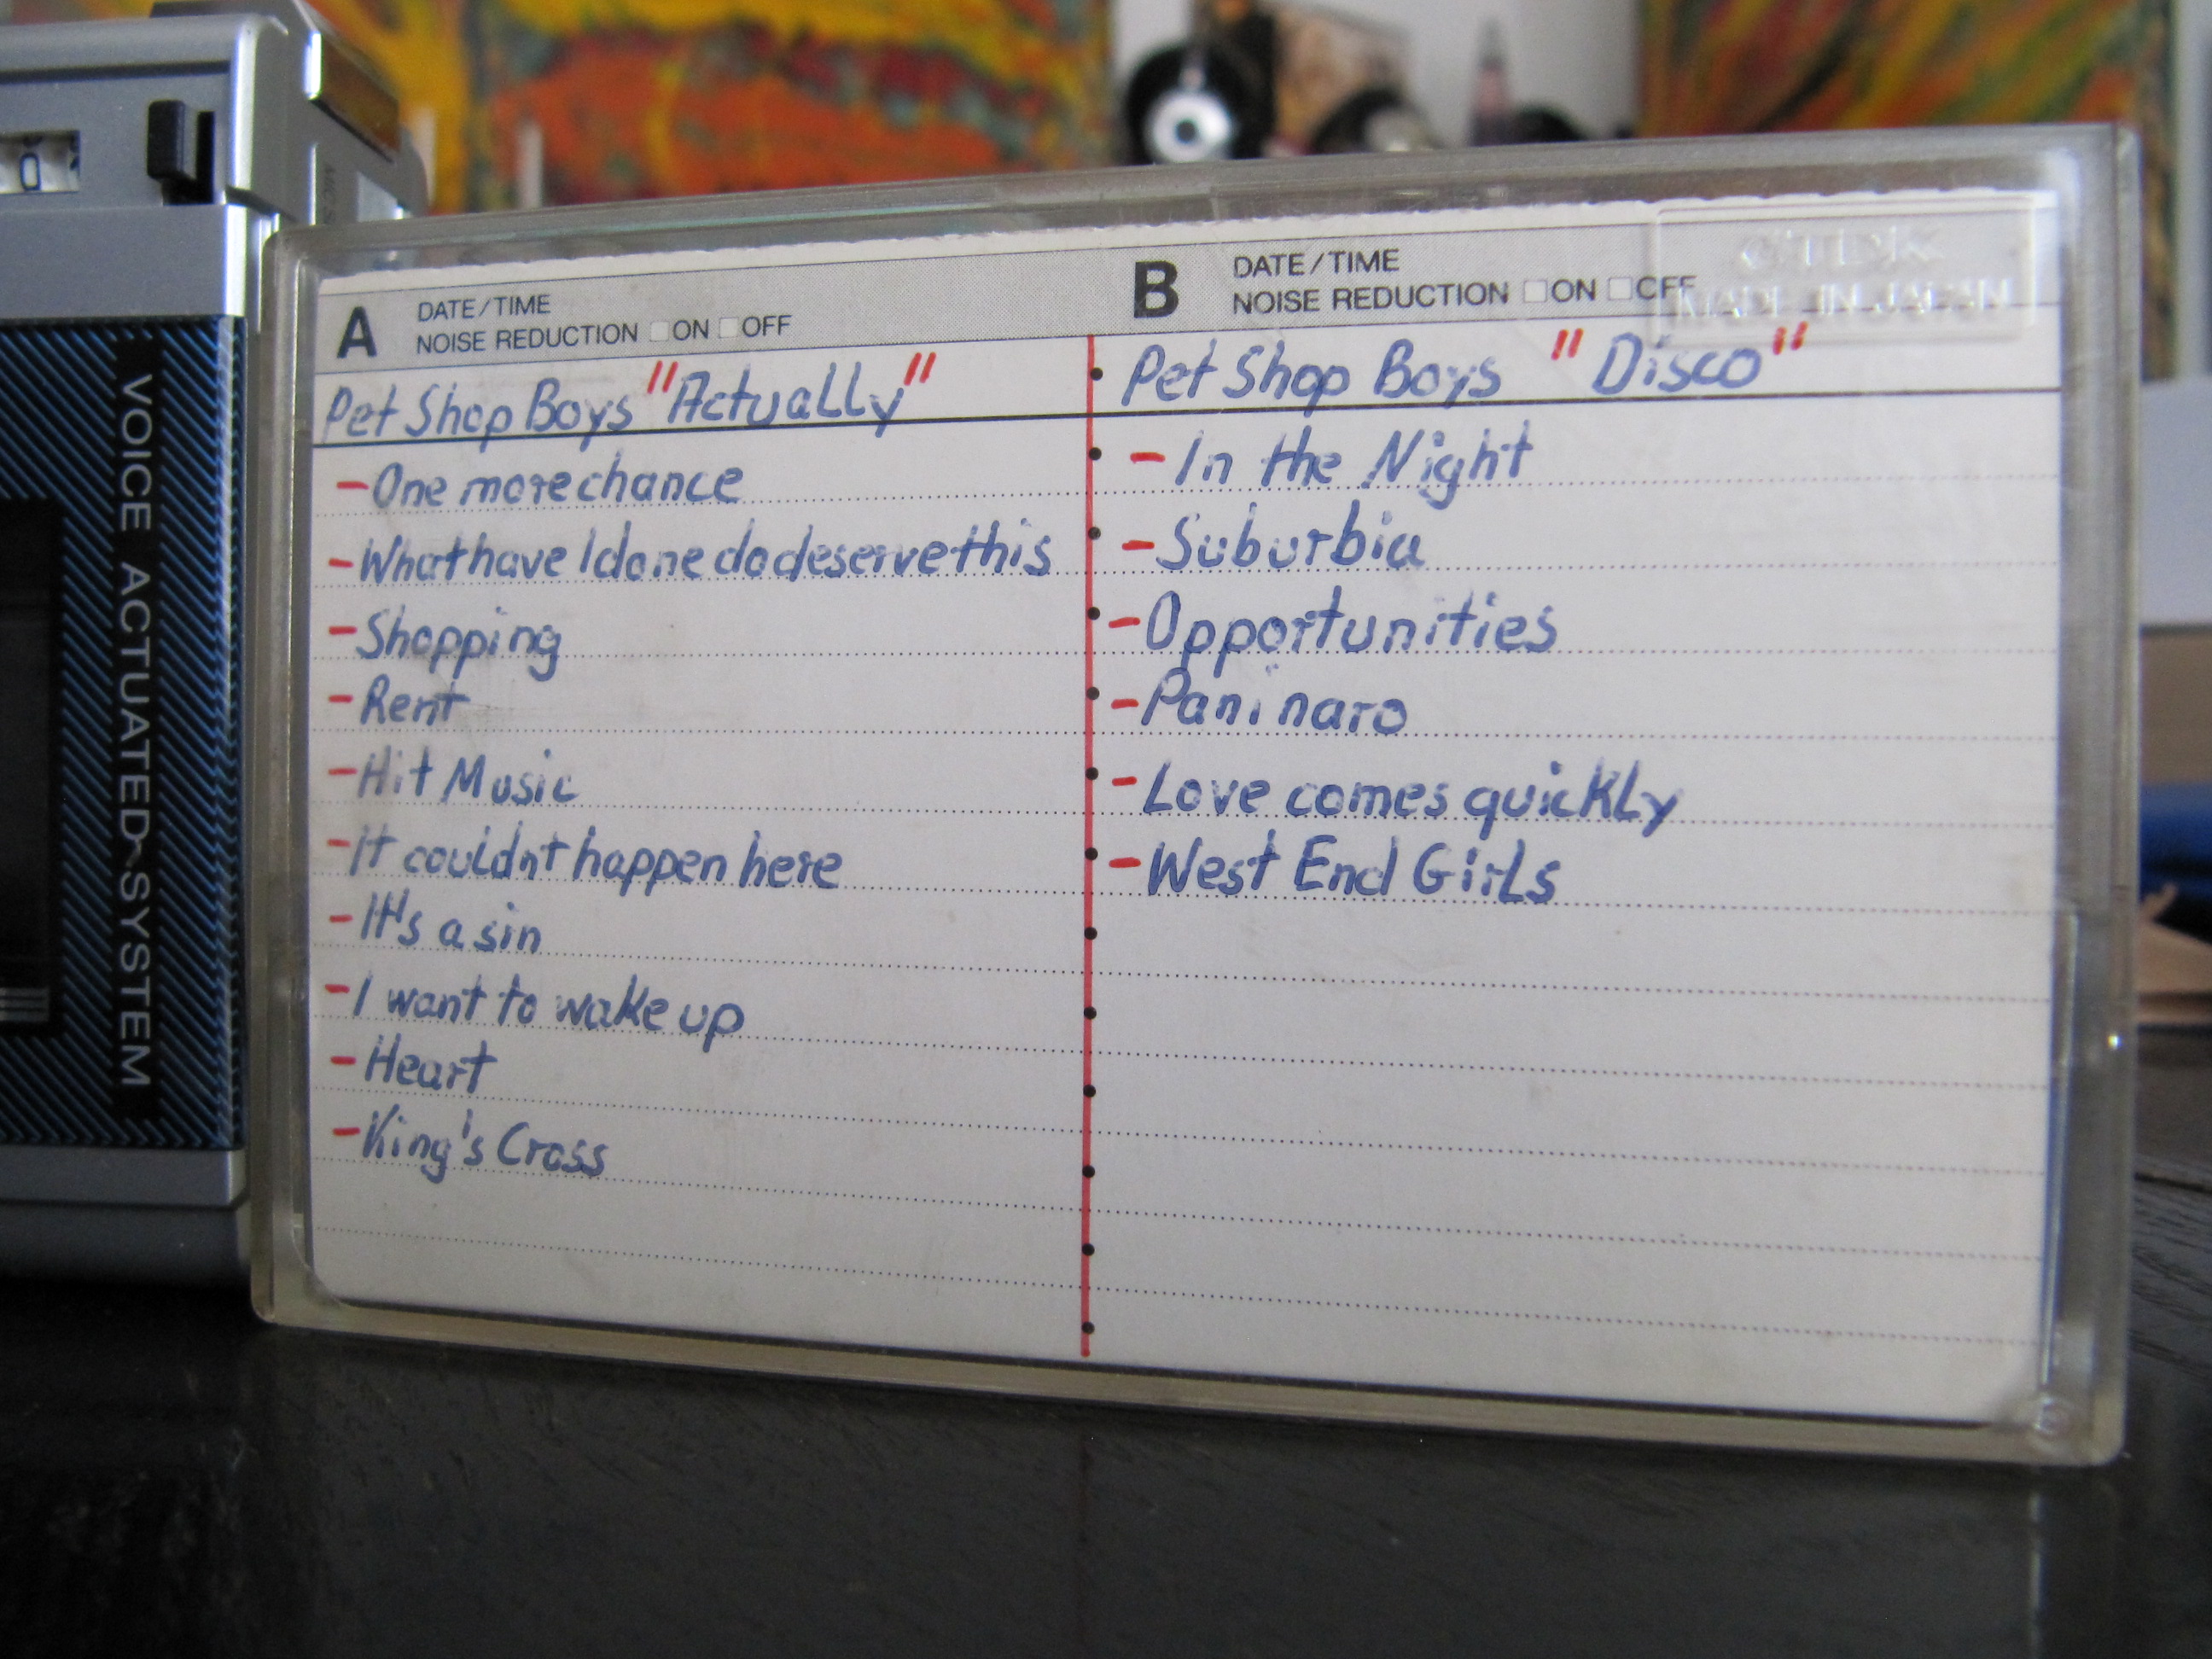 VOICE ACTUATED SYSTEM
TDK
MADE IN JAPAN
A
DATE/TIME
NOISE REDUCTION ON OFF
Pet Shop Boys "Actually"
-One more chance
-What have I done do deserve this
-Shopping
-Rent
-Hit Music
-It couldnt happen here
-It's a sin
-I want to wake up
-Heart
-King's Cross
B
DATE/TIME
NOISE REDUCTION ON OFF
Pet Shop Boys "Disco"
-In the Night
-Suburbia
-Opportunities
-Paninaro
-Love comes quickly
-West End Girls